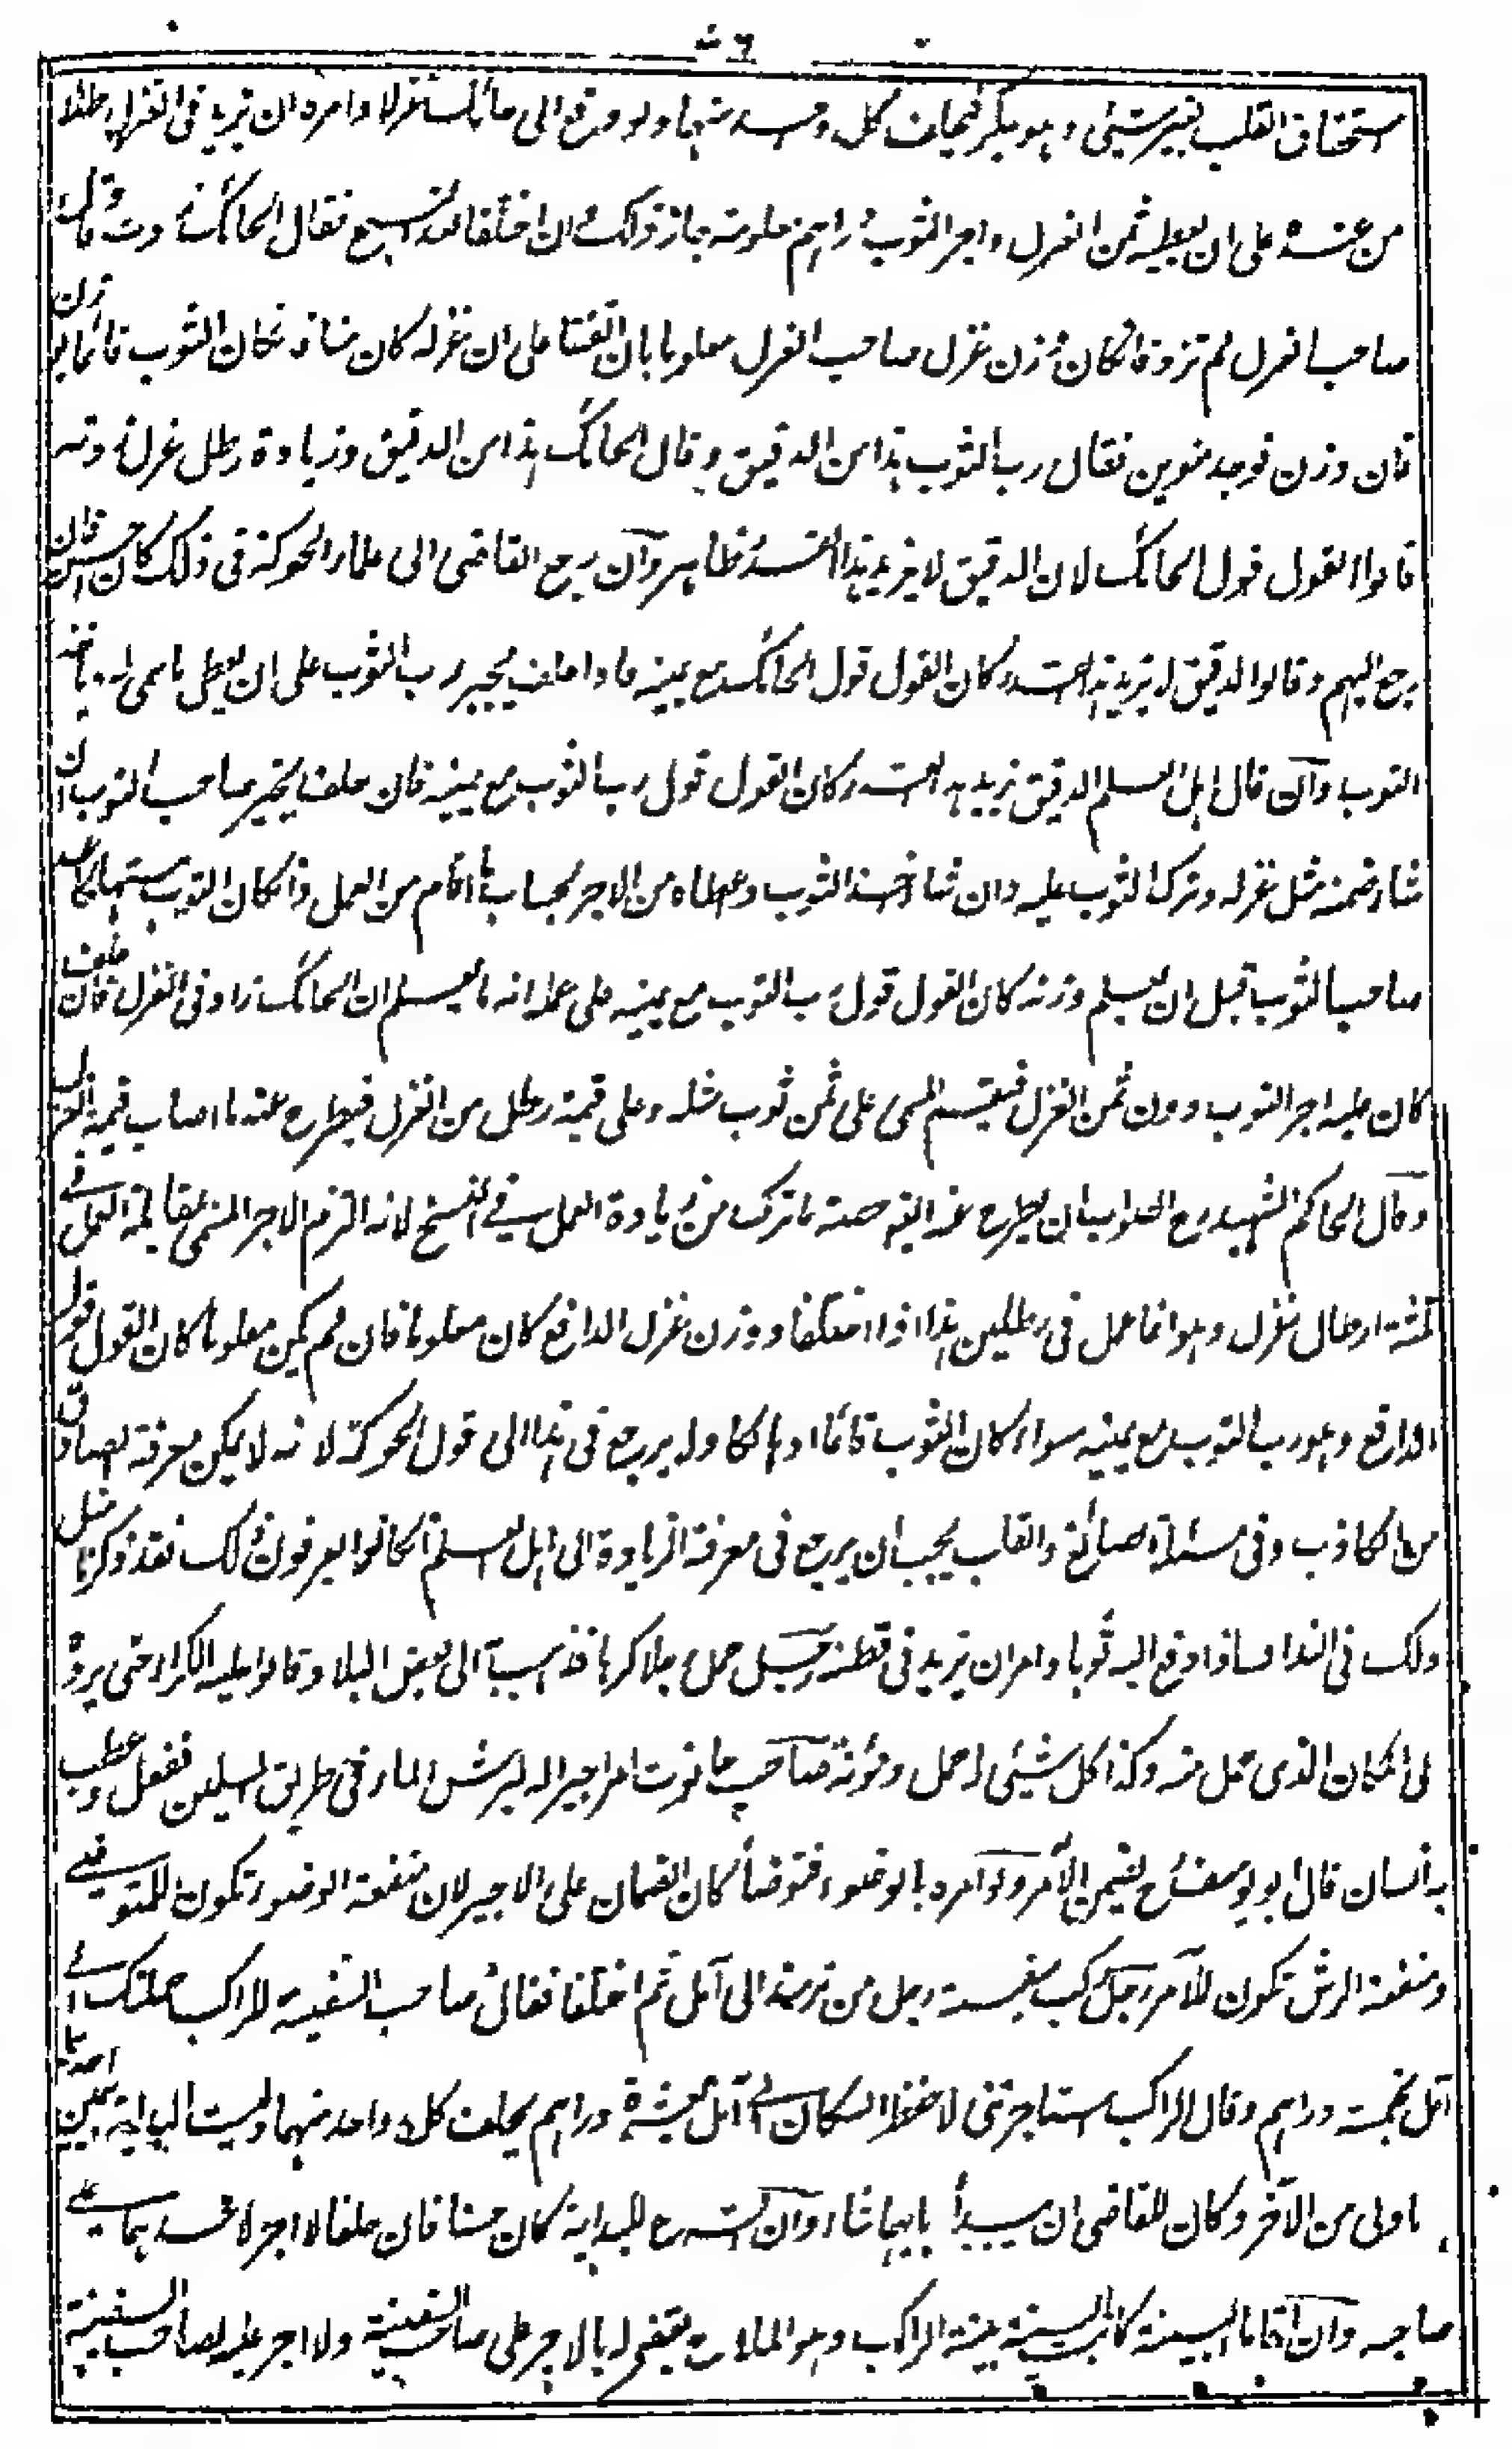 استحقاق القلب بغير شيئ وهو ينكر فيحلف كل واحد منهما ولو دفع الى حائك غزلا وامره ان يزيد فى الغزل رطلا
من عنده على ان يعطيه ثمن الغزل واجر الثوب دراهم معلومة جاز ذلك وان اختلفا بعد النسج فقال الحائك زدت وقال
صاحب الغزل لم تزد فان كان وزن غزل صاحب الغزل معلوما بان اتفقا على ان غزله كان منا فان كان الثوب قائما يوزن
فان وزن فوجد منوين فقال رب الثوب هذا من الدقيق وقال الحائك هذا من الدقيق وزيادة رطل غزل زدته
قالوا القول قول الحائك لان الدقيق لا يزيد هذا القدر ظاهر وان رجع القاضى الى علماء الحوكة فى ذلك كان احسن فان
رجع اليهم وقالوا الدقيق لا يزيد هذا القدر كان القول قول الحائك مع يمينه فاذا حلف يجبر رب الثوب على ان يعطى ما سمى له وياخذ
الثوب وان قال اهل العلم الدقيق يزيد هذا القدر كان القول قول رب الثوب مع يمينه فان حلف يخير صاحب الثوب ان
شاء ضمنه مثل غزله وترك الثوب عليه وان شاء اخذ الثوب واعطاه من الاجر بحساب ما اقام من العمل وان كان الثوب مستهلكا عند
صاحب الثوب قبل ان يعلم وزنه كان القول قول رب الثوب مع يمينه على علمه انه ما يعلم ان الحائك زاد فى الغزل فان حلف
كان عليه اجر الثوب دون ثمن الغزل فيقسم المسمى على ثمن ثوب مثله وعلى قيمة رطل من الغزل فيطرح عنه ما اصاب قيمة الغزل
وقال الحاكم الشهيد رح الصواب ان يطرح عنه ايضا حصة ما ترك من زيادة العمل فى النسج لانه التزم الاجر المسمى بمقابلة العمل فى
ثلثة ارطال غزل وهو انما عمل فى رطلين هذا اذا اختلفا ووزن غزل الدافع كان معلوما فان لم يكن معلوما كان القول قول
الدافع وهو رب الثوب مع يمينه سواء كان الثوب قائما او هالكا ولا يرجع فى هذا الى قول الحوكة لانه لا يمكن معرفة الصادق
من الكاذب وفى مسئلة الصائغ والقلب يجب ان يرجع فى معرفة الزيادة الى اهل العلم ان كانوا يعرفون ذلك فقد ذكرنا مثل
ذلك فى النداف اذا دفع اليه ثوبا وامر ان يزيد فى قطنه رجل حمل حملا كرها فذهب الى بعض البلاد قالوا عليه الكراء حتى يرده
الى المكان الذى حمل منه وكذا كل شيئ له حمل ومؤنة صاحب حانوت امر اجيرا له ليرش الماء فى طريق المسلمين ففعل وعطب
به انسان قال ابو يوسف رح يضمن الآمر ولو امره بالوضوء فتوضأ كان الضمان على الاجير لان منفعة الوضوء تكون للمتوضى
ومنفعة الرش تكون للآمر رجل ركب سفينة رجل من ترمذ الى آمل ثم اختلفا فقال صاحب السفينة للراكب حملتك الى
آمل بخمسة دراهم وقال الراكب استاجرتنى لاحفظ السكان الى آمل بعشرة دراهم يحلف كل واحد منهما وليست البداية بيمين احدهما
باولى من الآخر وكان للقاضى ان يبدأ بايهما شاء وان اقرع للبداية كان حسنا فان حلفا لا اجر لاحدهما على
صاحبه وان اقاما البينة كانت البينة بينة الراكب وهو الملاح يقضى له بالاجر على صاحب السفينة ولا اجر عليه لصاحب السفينة